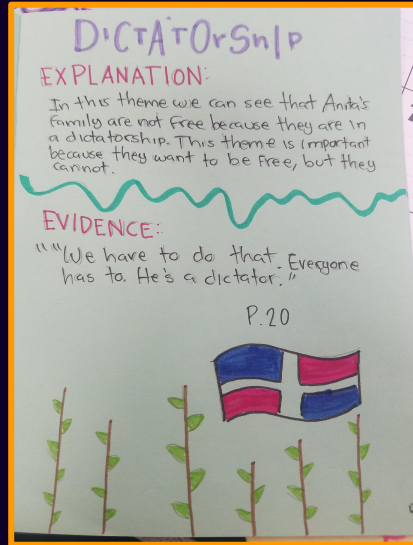 DICTATOrShIP
EXPLANATION:
In this theme we can see that Anita's
family are not free because they are in
a dictatorship. This theme is important
because they want to be free, but they
cannot.
EVIDENCE:
""We have to do that. Everyone
has to. He's a dictator."
P.20